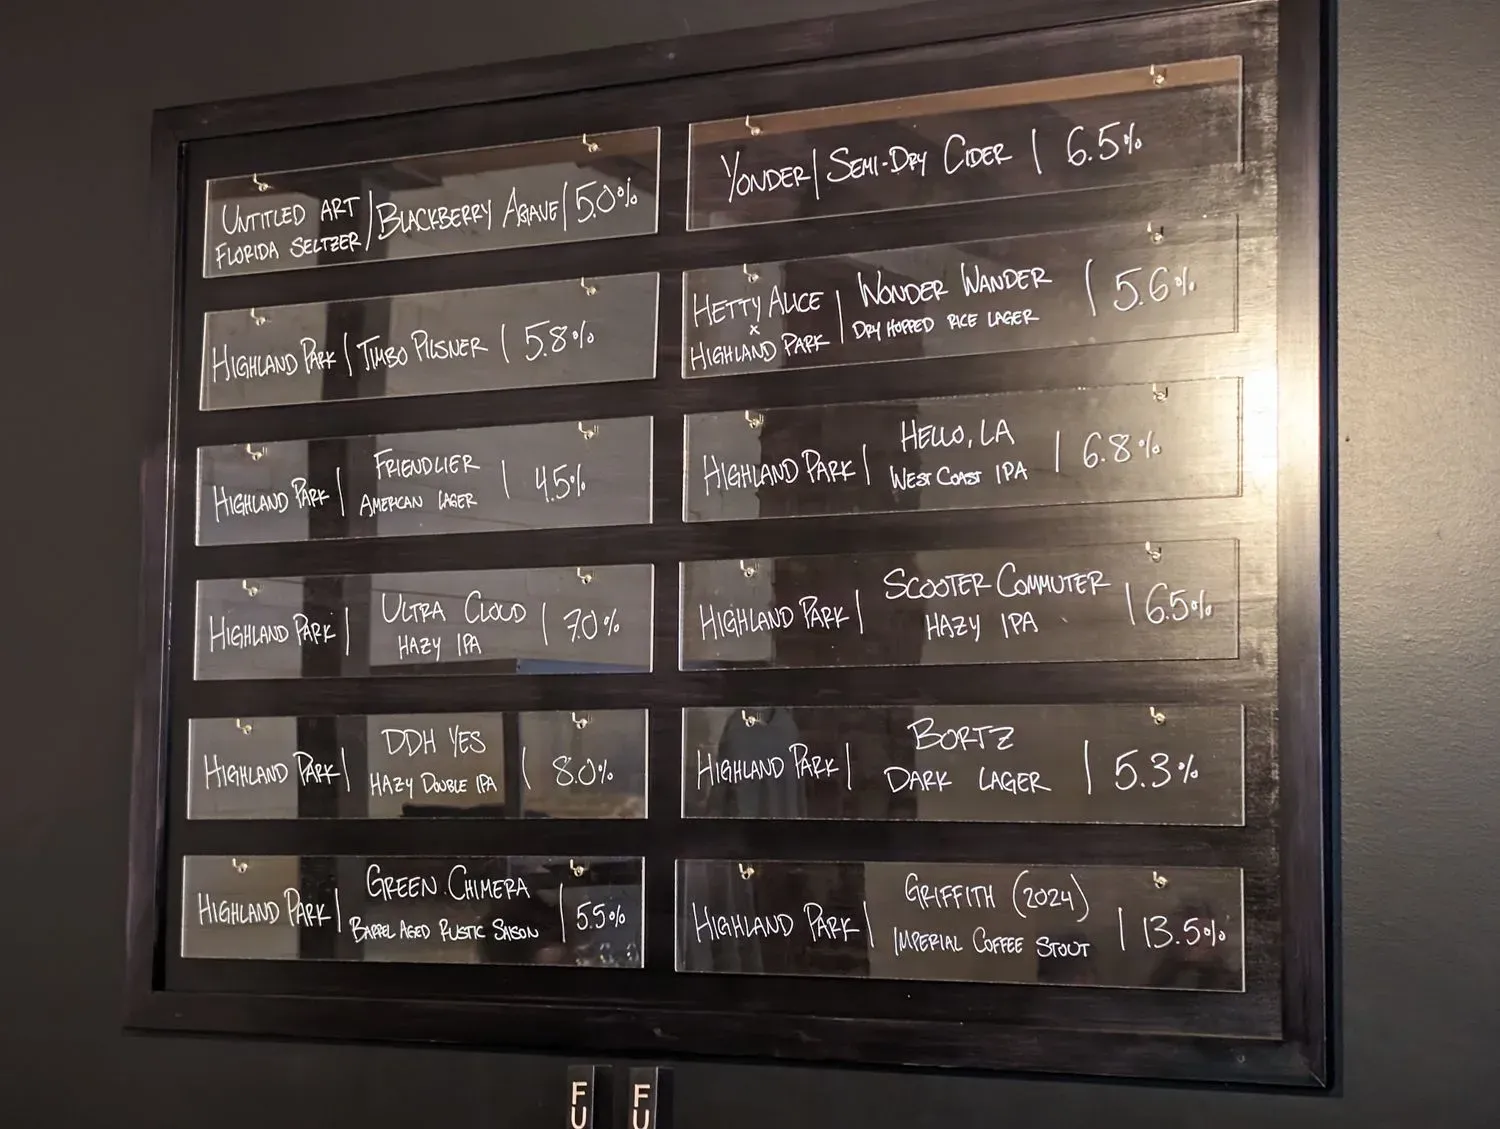 UNTITLED ART | BLACKBERRY AGAVE | 5.0%
FLORIDA SELTZER
HIGHLAND PARK | TIMBO PILSNER | 5.8%
HIGHLAND PARK | FRIENDLIER | 4.5%
AMERICAN LAGER
HIGHLAND PARK | ULTRA CLOUD | 7.0%
HAZY IPA
HIGHLAND PARK | DDH YES | 8.0%
HAZY DOUBLE IPA
HIGHLAND PARK | GREEN CHIMERA | 5.5%
BARREL AGED RUSTIC SAISON
YONDER | SEMI-DRY CIDER | 6.5%
HETTY ALICE | WONDER WANDER | 5.6%
x
HIGHLAND PARK DRY HOPPED RICE LAGER
HIGHLAND PARK | HELLO, LA | 6.8%
WEST COAST IPA
HIGHLAND PARK | SCOOTER COMMUTER | 6.5%
HAZY IPA
HIGHLAND PARK | BORTZ | 5.3%
DARK LAGER
HIGHLAND PARK | GRIFFITH (2024) | 13.5%
IMPERIAL COFFEE STOUT
FU
FU